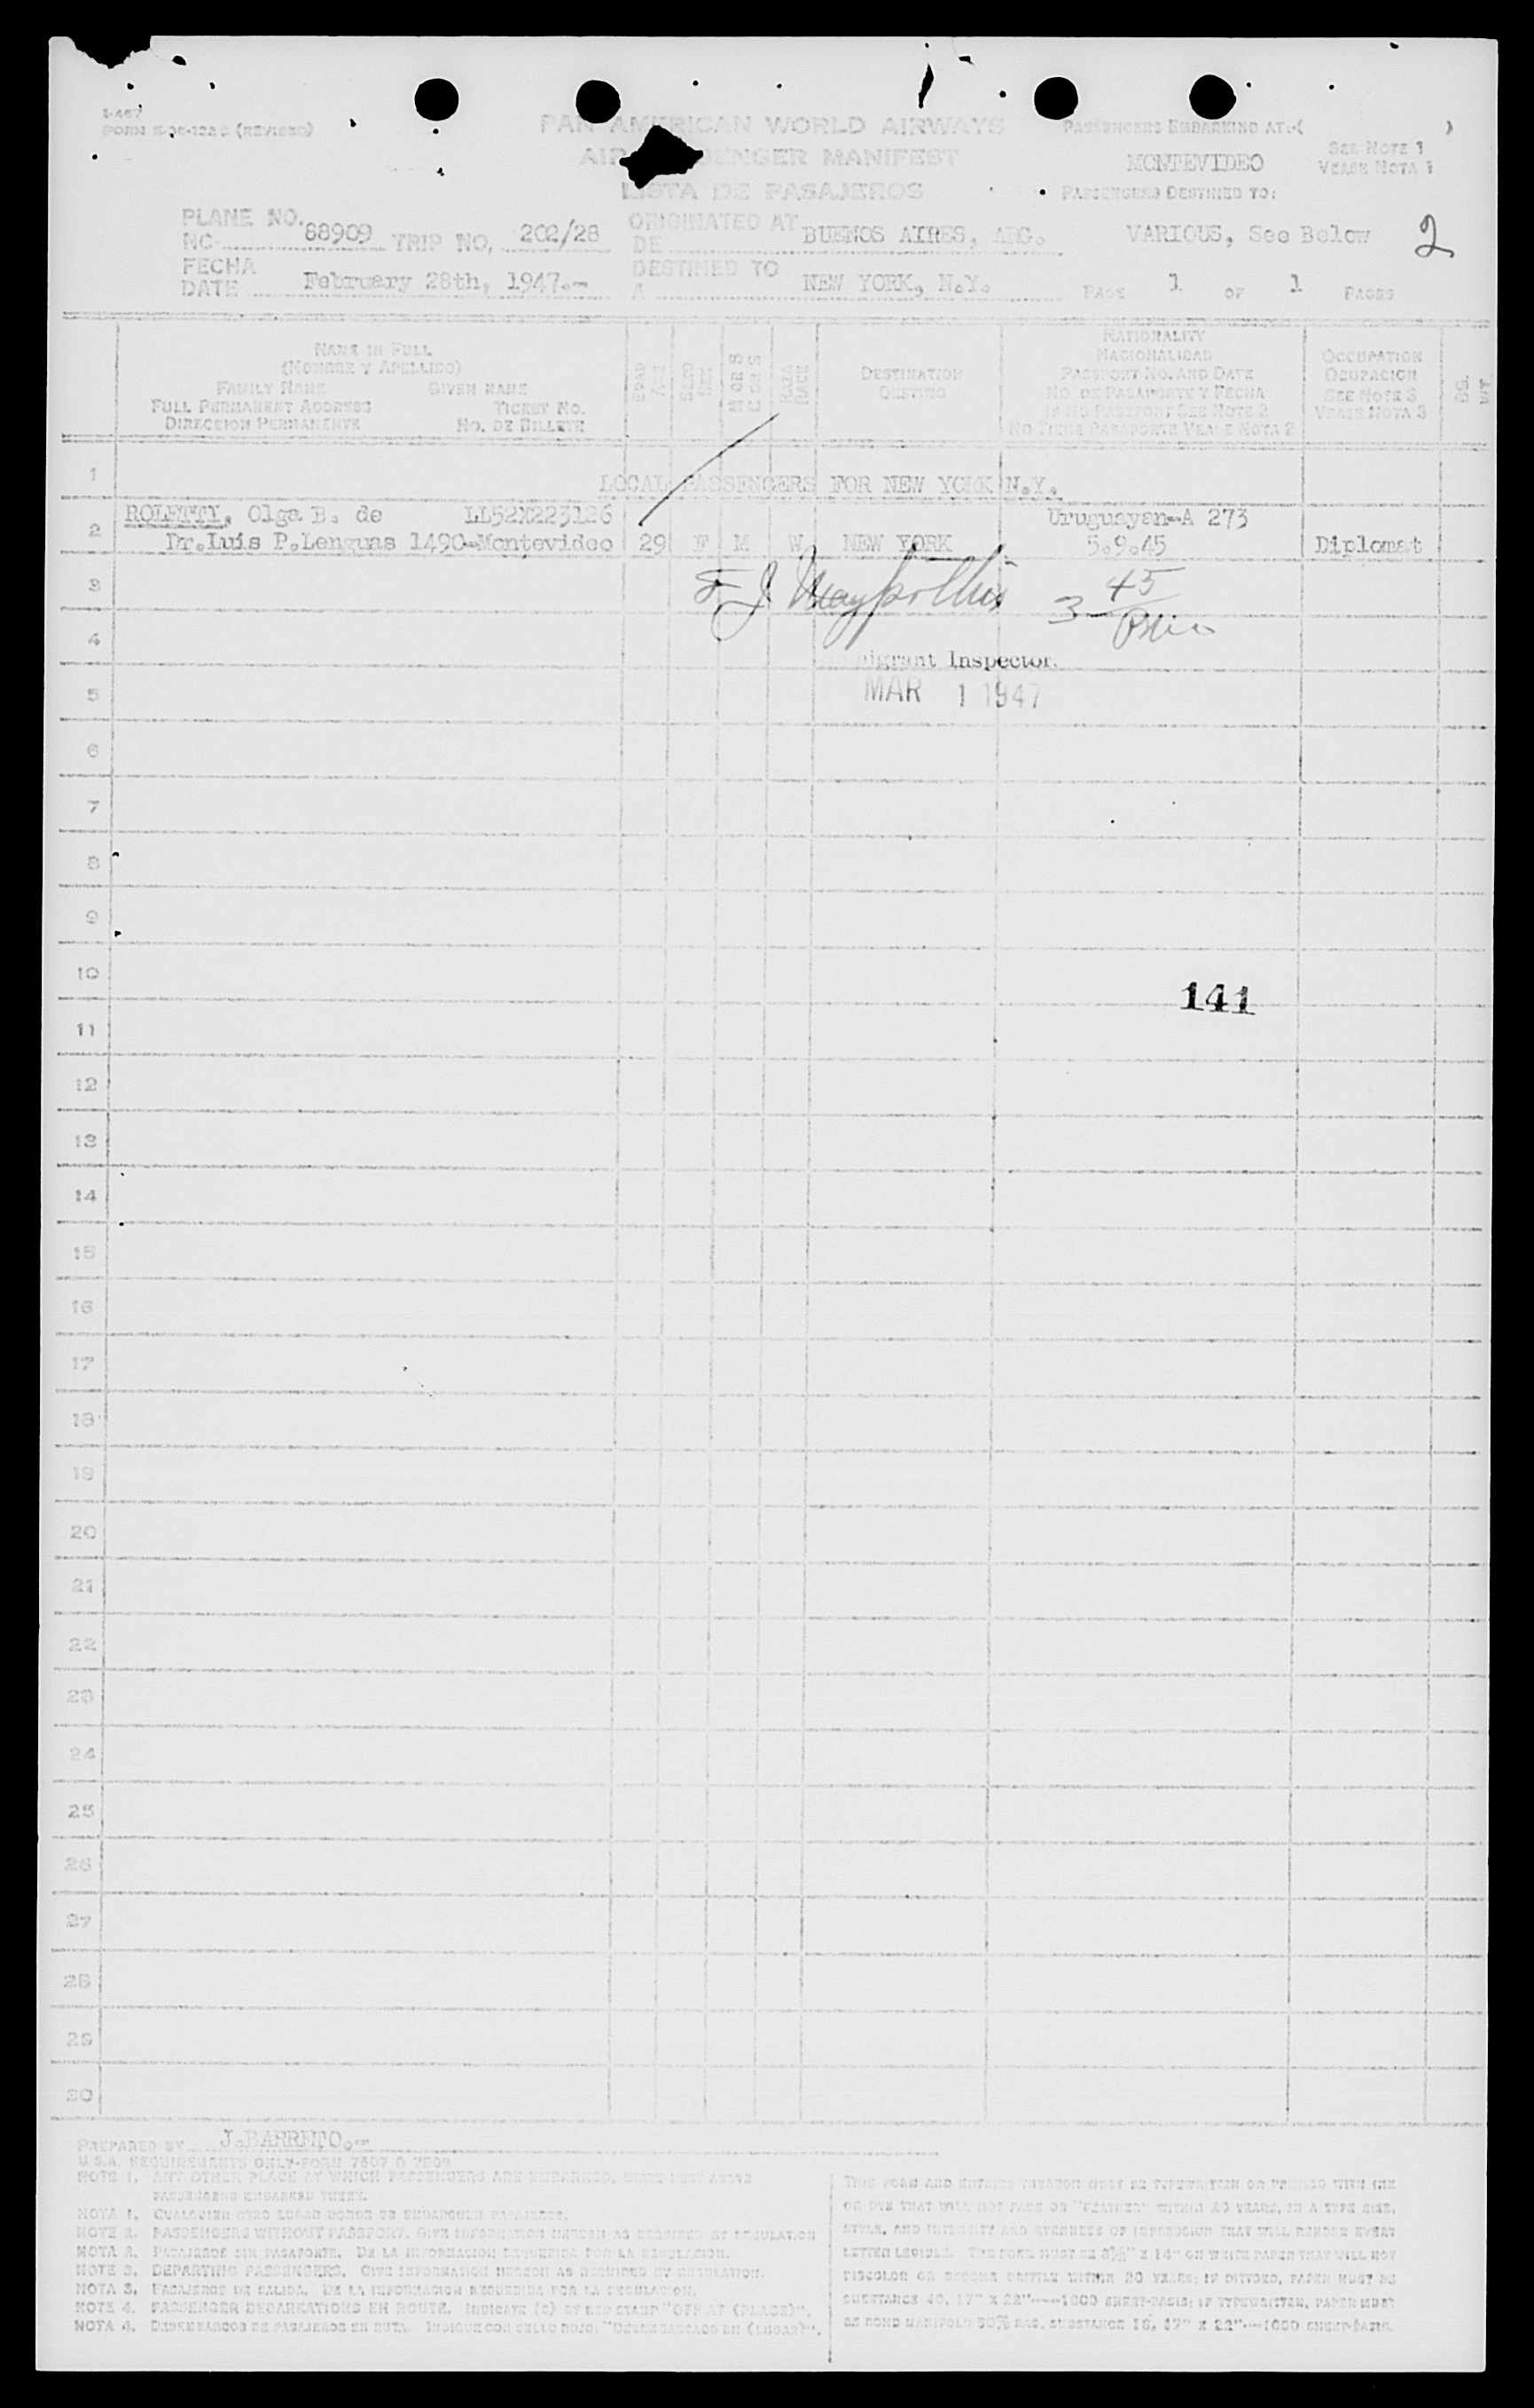 I-467
FORM (REVISED)
PAN AMERICAN WORLD AIRWAYS
AIR PASSENGER MANIFEST
LISTA DE PASAJEROS
PASSENGERS EMBARKING AT:( )
MONTEVIDEO
SEE NOTE 1
VEASE NOTA 1
PASSENGERS DESTINED TO:
VARIOUS, See Below 2
PLANE NO.
NC 88909 TRIP NO. 202/28
ORIGINATED AT
DE BUENOS AIRES, ARG.
FECHA
DATE February 28th, 1947.-
DESTINED TO
A NEW YORK, N.Y.
PAGE 1 OF 1 PAGES
NAME IN FULL
(NOMBRE Y APELLIDO)
FAMILY NAME GIVEN NAME
FULL PERMANENT ADDRESS TICKET NO.
DIRECCION PERMANENTE NO. DE BILLETE
EDAD
AGE
SEXO
SEX
M OR S
C OR S
RAZA
RACE
DESTINATION
DESTINO
NATIONALITY
NACIONALIDAD
PASSPORT NO. AND DATE
NO. DE PASAPORTE Y FECHA
IF NO PASSPORT SEE NOTE 2
NO TIENE PASAPORTE VEASE NOTA 2
OCCUPATION
OCUPACION
SEE NOTE 3
VEASE NOTA 3
1
LOCAL PASSENGERS FOR NEW YORK N.Y.
2
ROLETTI, Olga B. de LL52X223126 Uruguayan-A 273
Dr.Luis P.Lenguas 1490-Montevideo 29 F M W NEW YORK 5.9.45 Diplomat
3
3 45
4
Inspector.
5
MAR 1 1947
6
7
8
9
10
141
11
12
13
14
15
16
17
18
19
20
21
22
23
24
25
26
27
28
29
30
PREPARED BY J.BARRETO.-
U.S.A. REQUIREMENTS ONLY-FORM 7507 O 7509
NOTE 1. ANY OTHER PLACE AT WHICH PASSENGERS ARE EMBARKED,
PASSENGERS EMBARKED THERE.
NOTA 1. CUALQUIER OTRO LUGAR DONDE SE EMBARQUEN PASAJEROS.
NOTE 2. PASSENGERS WITHOUT PASSPORT. GIVE INFORMATION HEREON AS REQUIRED BY REGULATION
NOTA 2. PASAJEROS SIN PASAPORTE. DE LA INFORMACION REQUERIDA POR LA REGULACION.
NOTE 3. DEPARTING PASSENGERS. GIVE INFORMATION HEREON AS REQUIRED BY REGULATION.
NOTA 3. PASAJEROS DE SALIDA. DE LA INFORMACION REQUERIDA POR LA REGULACION.
NOTE 4. PASSENGER DEBARKATIONS EN ROUTE. INDICATE (S) BY RED STAMP "OFF AT (PLACE)".
NOTA 4. DESEMBARCOS DE PASAJEROS EN RUTA. INDIQUE CON SELLO ROJO, "DESEMBARCADO EN (LUGAR)".
THIS FORM AND ENTRIES THEREON MUST BE TYPEWRITTEN OR PRINTED WITH INK
OR DYE THAT WILL NOT FADE OR "FEATHER" WITHIN 20 YEARS, IN A TYPE SIZE,
STYLE, AND INTENSITY AND EVENNESS OF IMPRESSION THAT WILL RENDER EVERY
LETTER LEGIBLE. THE FORM MUST BE 8½" X 14" ON WHITE PAPER THAT WILL NOT
DISCOLOR OR BECOME BRITTLE WITHIN 20 YEARS; IF DITTOED, PAPER MUST BE
SUBSTANCE 40, 17" X 22"----1000 SHEET-BASIS; IF TYPEWRITTEN, PAPER MUST
BE BOND MANIFOLD 50% RAG, SUBSTANCE 16, 17" X 22"---1000 SHEET-BASIS.